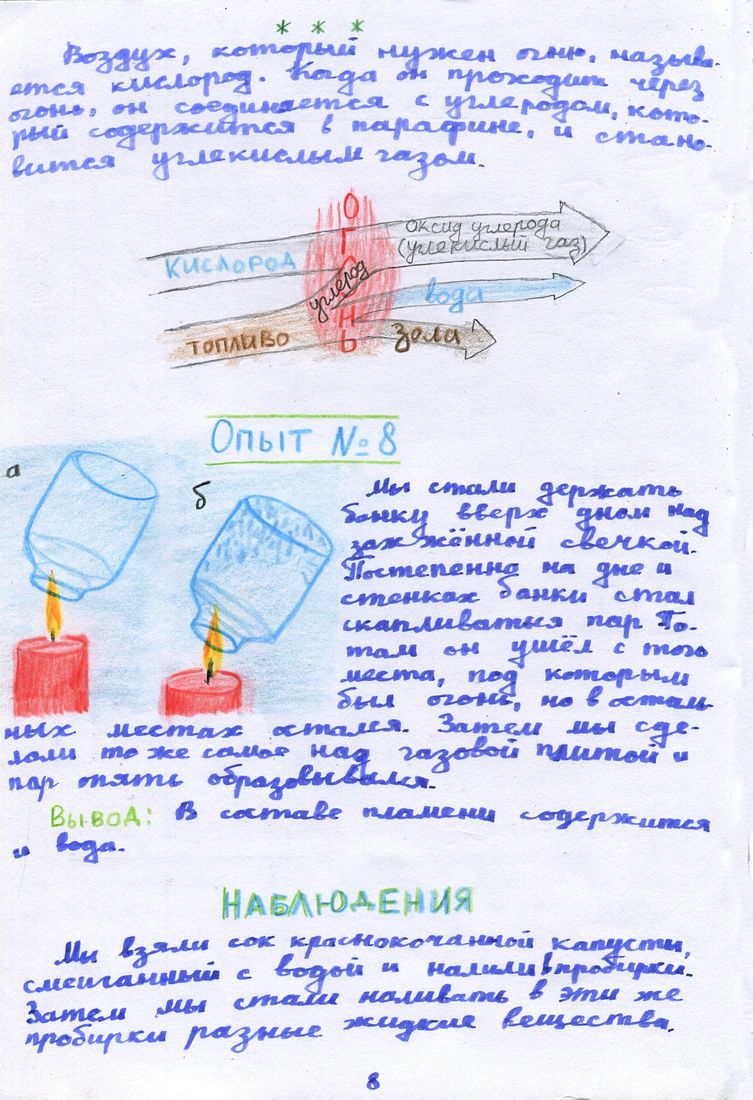 * * *
Воздух, который нужен огню, называ-
ется кислород. Когда он проходит через
огонь, он соединяется с углеродом, кото-
рый содержится в парафине, и стано-
вится углекислым газом.
ОГОНЬ
КИСЛОРОД
углерод
ОКСИД углерода
(углекислый газ)
вода
ТОПЛИВО
Зола
ОПЫТ №8
а
б
Мы стали держать
банку вверх дном над
зажжённой свечкой.
Постепенно на дне и
стенках банки стал
скапливаться пар По-
том он ушёл с того
места, под которым
был огонь, но в осталь-
ных местах остался. Затем мы сде-
лали то же самое над газовой плитой и
пар опять образовывался.
Вывод: В составе пламени содержится
и вода.
НАБЛЮДЕНИЯ
Мы взяли сок краснокочанной капусты,
смешанный с водой и налили в пробирки.
Затем мы стали наливать в эти же
пробирки разные жидкие вещества.
8